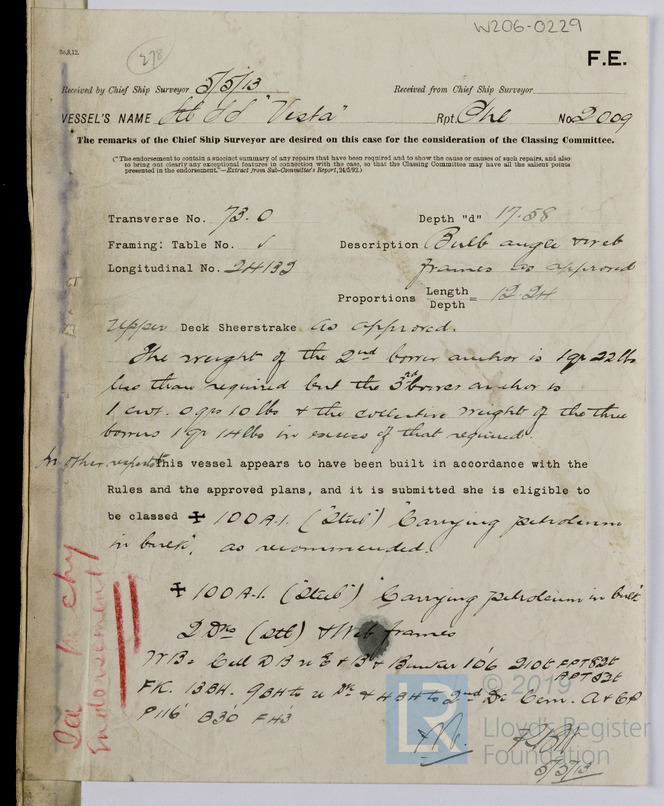 W206-0229
No.8,12.
278
F.E.
Received by Chief Ship Surveyor 5/5/13 Received from Chief Ship Surveyor
VESSEL'S NAME "Vista" Rpt. Che No. 2009
The remarks of the Chief Ship Surveyor are desired on this case for the consideration of the Classing Committee.
("The endorsement to contain a succinct summary of any repairs that have been required and to show the cause or causes of such repairs, and also
to bring out clearly any exceptional features in connection with the case, so that the Classing Committee may have all the salient points
presented in the endorsement."—Extract from Sub-Committee's Report, 24/5/92.)
Transverse No. 73.0 Depth "d" 17.58
Framing: Table No. ✓ Description Bulb angle & web
Longitudinal No. 24132 frames as approved
Proportions Length / Depth = 12.24
Upper Deck Sheerstrake as approved.
The weight of the 2nd bower anchor is 1 qr 22 lbs
less than required but the 3rd bower anchor is
1 cwt. 0 qrs 10 lbs & the collective weight of the three
bowers 1 qr 14 lbs in excess of that required.
In other respects this vessel appears to have been built in accordance with the
Rules and the approved plans, and it is submitted she is eligible to
be classed ✠ 100A.1. ("Steel") "Carrying petroleum
in bulk", as recommended.
✠ 100A.1. ("Steel") "Carrying petroleum in bulk"
2 Dks (Stl) & Web frames
WB = Cell DB u E & B & Bunker 106' 210t FPT 82t
APT 82t
FK. 13BH. 9BH to u Dk & 4BH to 2nd Dk Cem. A & CP
P116' B30' F43'
5/5/13
Endorsement
© 2019
LR
Lloyd's Register
Foundation